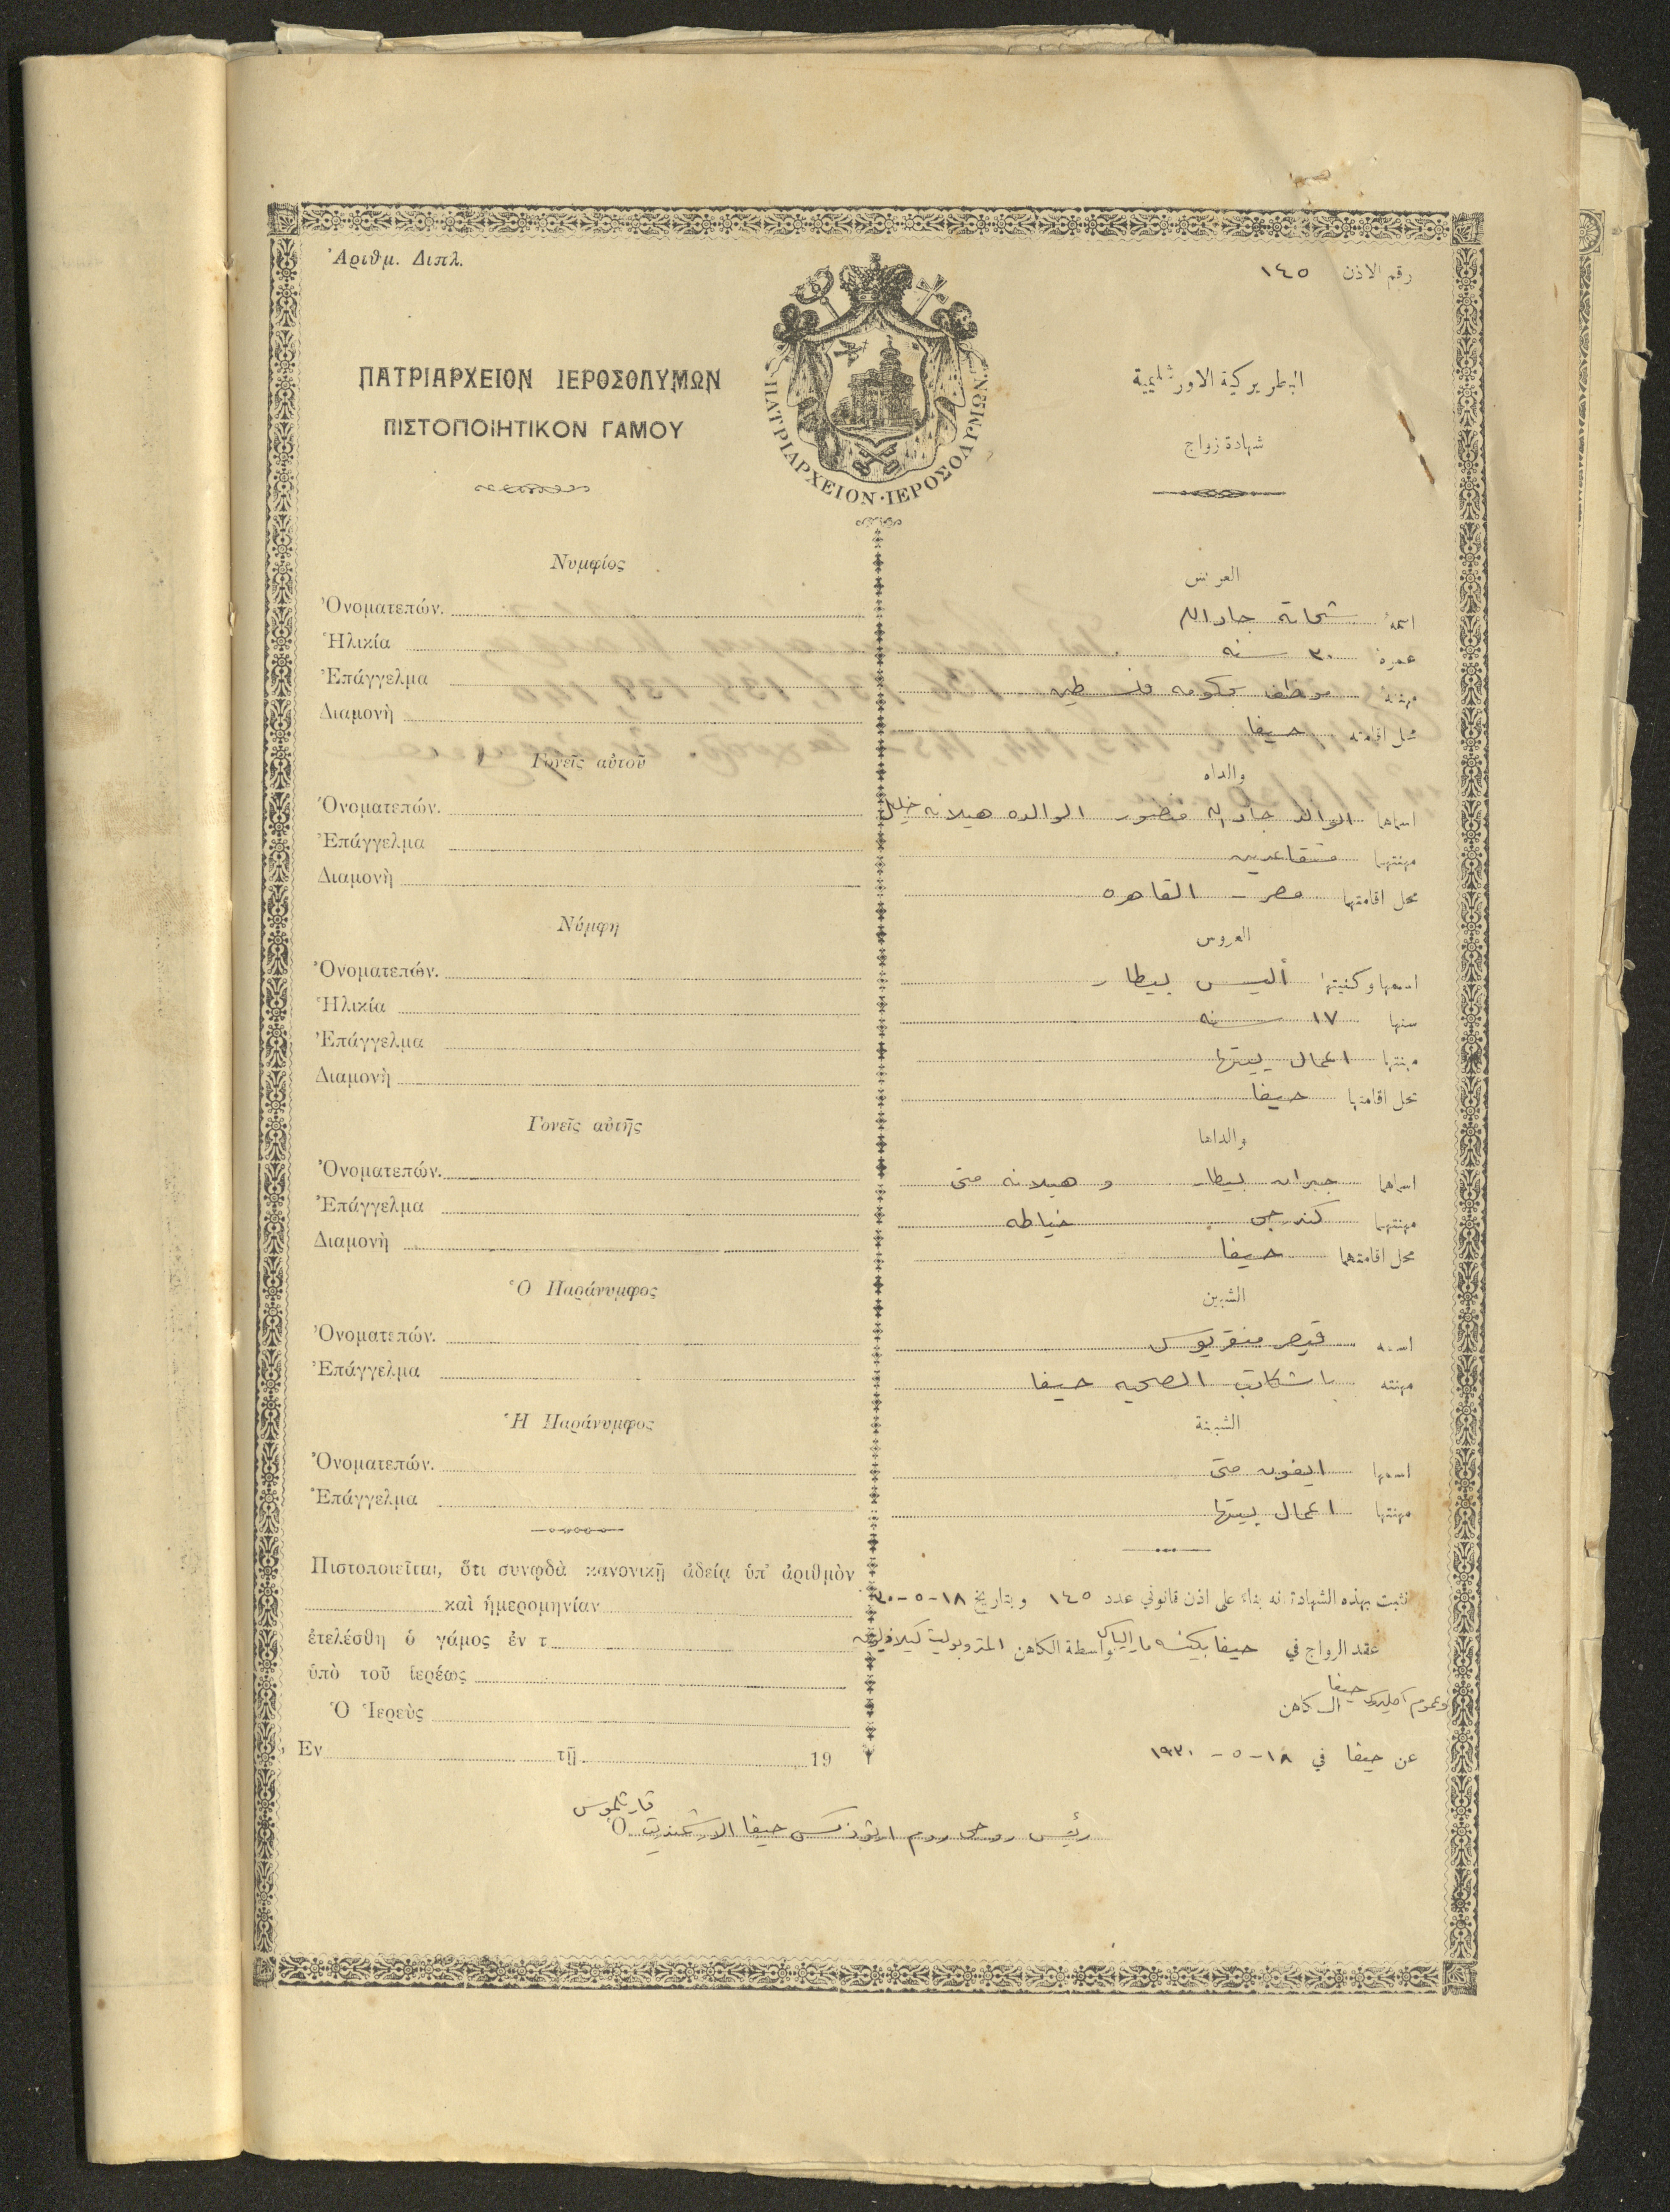 Ἀριθμ. Διπλ.
رقم الاذن ١٤٥
ΠΑΤΡΙΑΡΧΕΙΟΝ ΙΕΡΟΣΟΛΥΜΩΝ
ΠΙΣΤΟΠΟΙΗΤΙΚΟΝ ΓΑΜΟΥ
ΠΑΤΡΙΑΡΧΕΙΟΝ·ΙΕΡΟΣΟΛΥΜΩΝ
البطريركية الاورشليمية
شهادة زواج
Νυμφίος
Ὀνοματεπών.
Ἡλικία
Ἐπάγγελμα
Διαμονὴ
Γονεῖς αὐτοῦ
Ὀνοματεπών.
Ἐπάγγελμα
Διαμονὴ
Νύμφη
Ὀνοματεπών.
Ἡλικία
Ἐπάγγελμα
Διαμονὴ
Γονεῖς αὐτῆς
Ὀνοματεπών.
Ἐπάγγελμα
Διαμονὴ
Ὁ Παράνυμφος
Ὀνοματεπών.
Ἐπάγγελμα
Ἡ Παράνυμφος
Ὀνοματεπών.
Ἐπάγγελμα
Πιστοποιεῖται, ὅτι συνῳδὰ κανονικῇ ἀδείᾳ ὑπ' ἀριθμὸν
καὶ ἡμερομηνίαν
ἐτελέσθη ὁ γάμος ἐν τ
ὑπὸ τοῦ ἱερέως
Ὁ Ἱερεὺς
Ἐν τῇ 19
العريس
اسمه شحاته جادالله
عمره ٣٠ سنه
مهنته موظف بحكومه فلسطين
محل اقامته حيفا
والداه
اسماهما الوالد جادالله منصور الوالده هيلانه خليل
مهنتهما متقاعدين
محل اقامتهما مصر - القاهره
العروس
اسمها وكنيتها أليس بيطار
سنها ١٧ سنه
مهنتها اعمال بيتها
محل اقامتها حيفا
والداها
اسماهما جبران بيطار و هيلانه متى
مهنتهما كندرجي خياطه
محل اقامتهما حيفا
الشبين
اسمه قيصر منقريوس
مهنته باشكاتب الصحيه حيفا
الشبينة
اسمها ايفون متى
مهنتها اعمال بيتها
نثبت بهذه الشهادة انه بناء على اذن قانوني عدد ١٤٥ وبتاريخ ١٨-٥-٣٠
عقد الزواج في حيفا بكنيسه مار الياس بواسطة الكاهن المتروبوليت كيلاذيون
وعموم اكليرس حيفا
الكاهن
عن حيفا في ١٨-٥-١٩٣٠
رئيس روحي روم ارثوذكس حيفا الارشمندريت